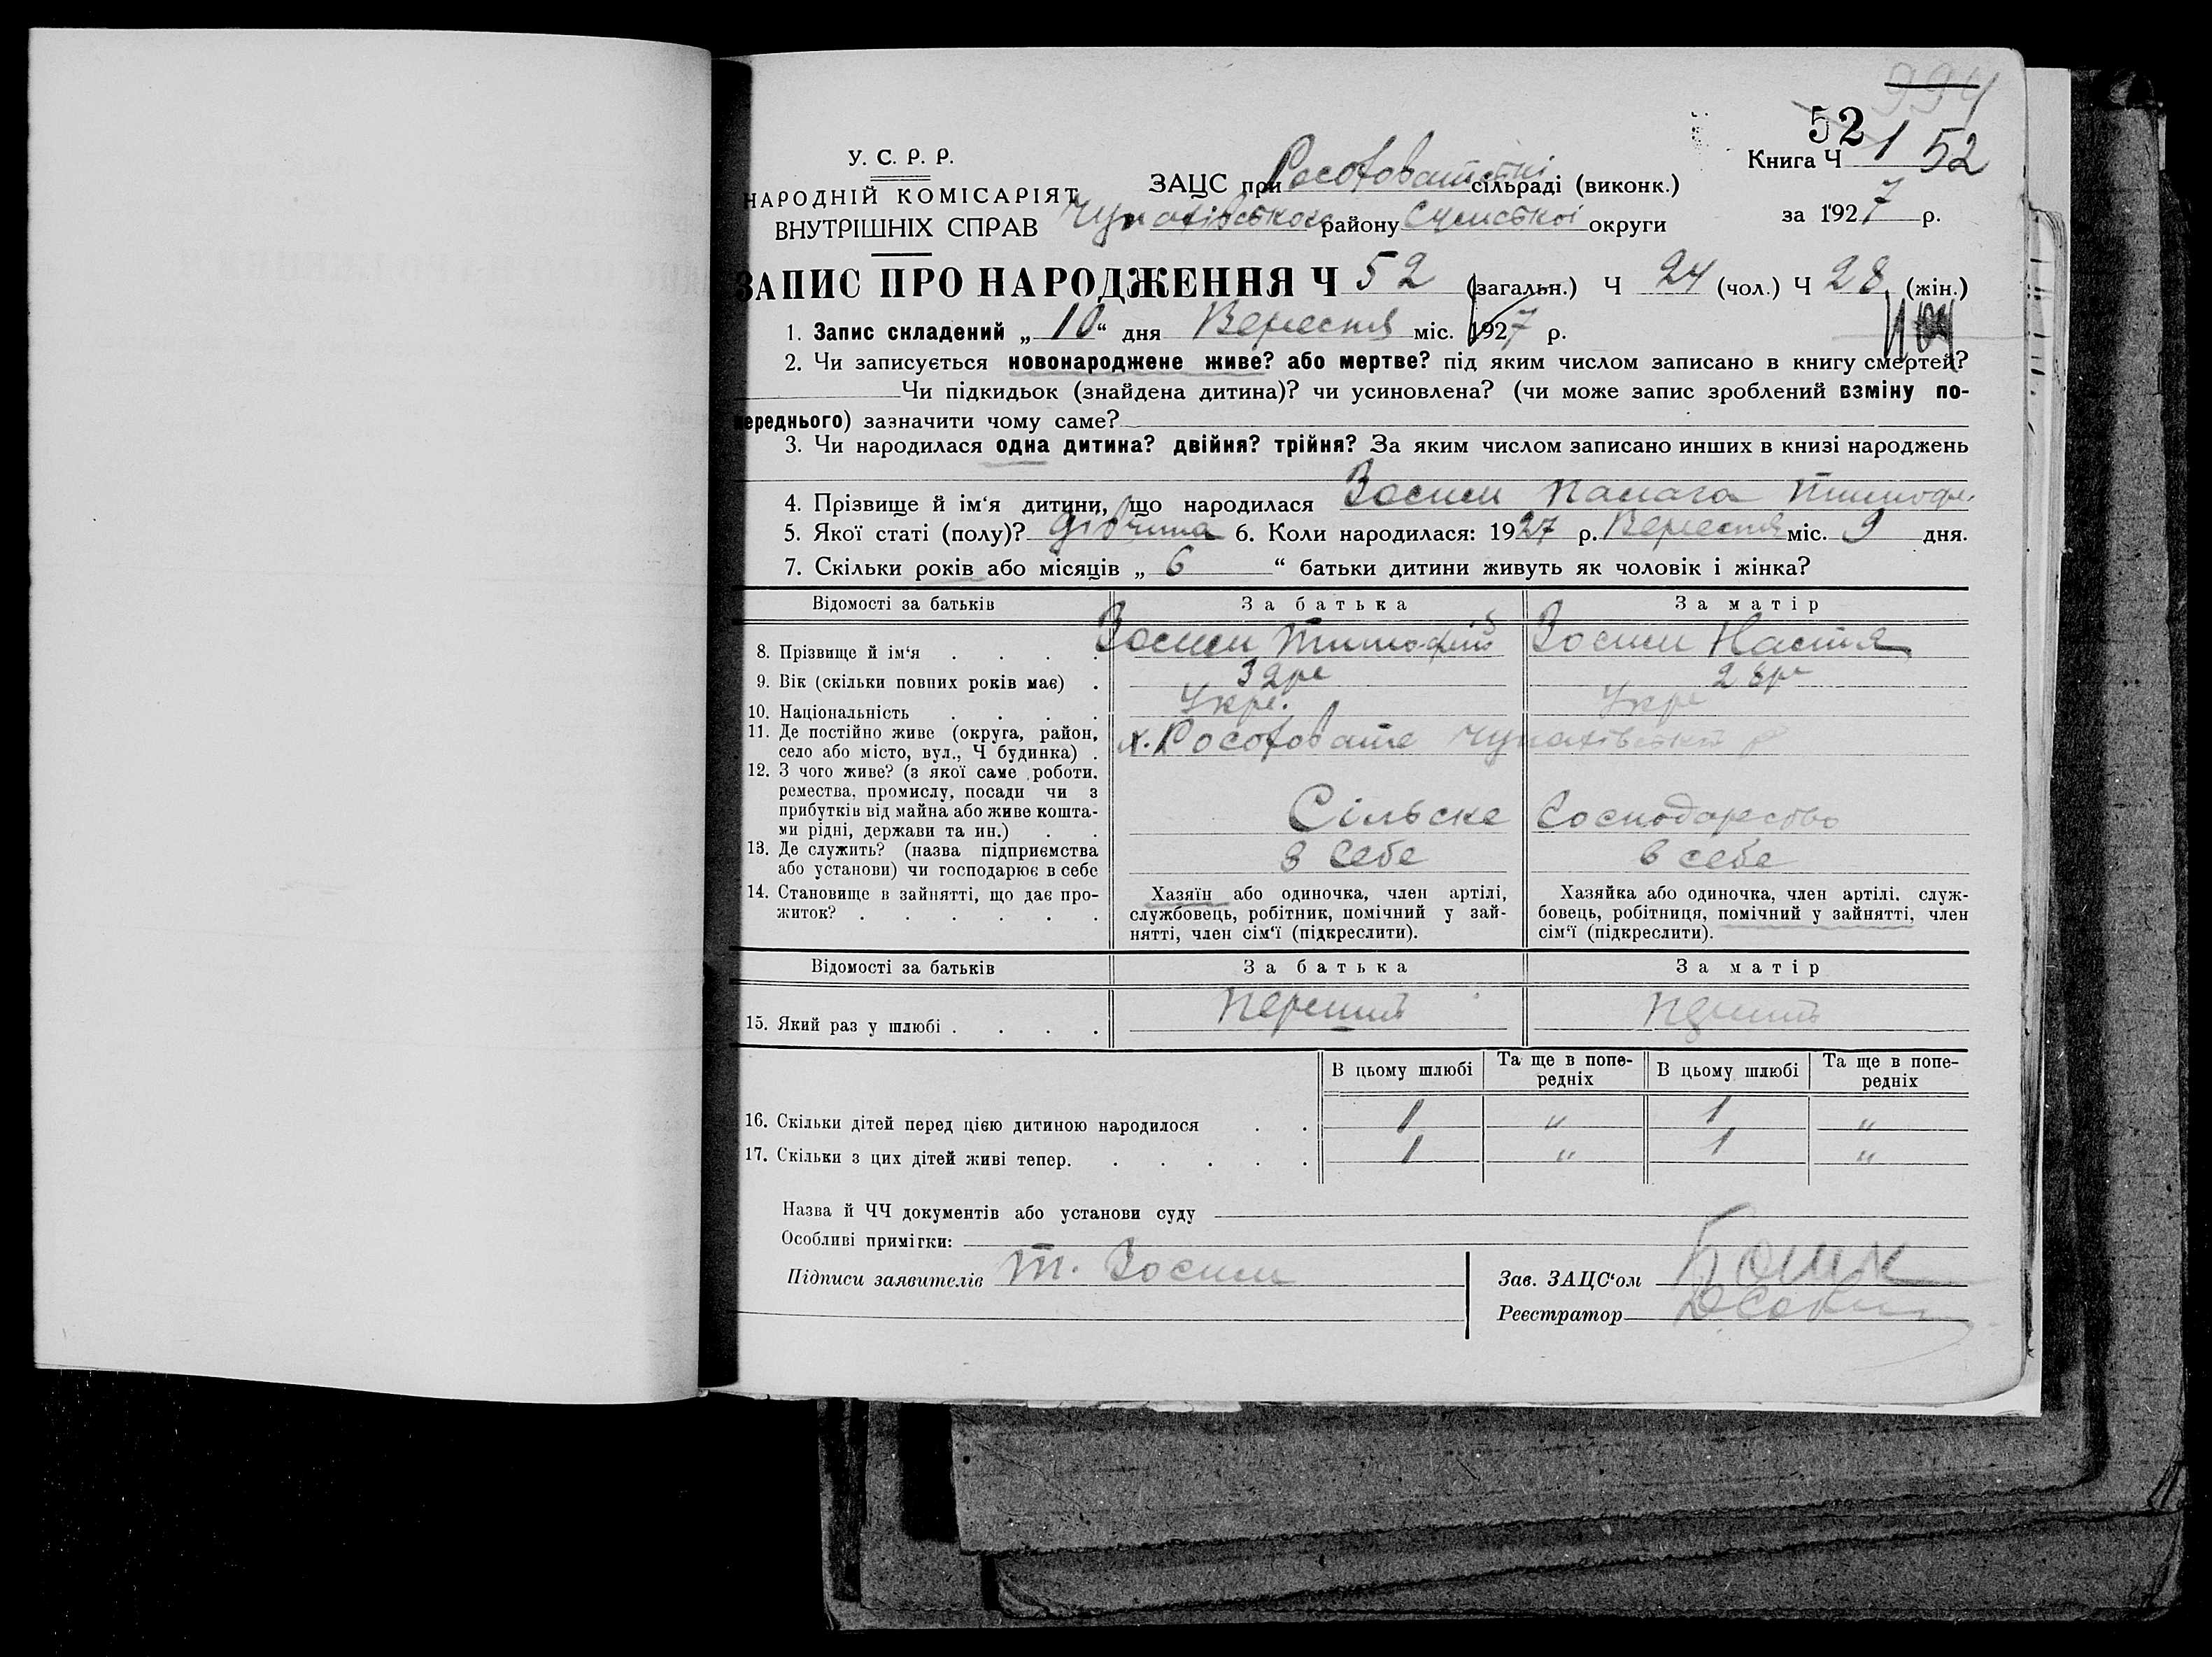 994
52
У. С. Р. Р.
Книга Ч 1 52
ЗАЦС при Рософоватські сільраді (виконк.)
НАРОДНІЙ КОМІСАРІЯТ
ВНУТРІШНІХ СПРАВ
Чупахівського району Сумської округи
за 1927 р.
ЗАПИС ПРО НАРОДЖЕННЯ Ч 52 (загальн.) Ч 24 (чол.) Ч 28 (жін.)
1. Запис складений „ 10 “ дня Вересня міс. 1927 р.
2. Чи записується новонароджене живе? або мертве? під яким числом записано в книгу смертей?
Чи підкидьок (знайдена дитина)? чи усиновлена? (чи може запис зроблений взміну по-
переднього) зазначити чому саме?
3. Чи народилася одна дитина? двійня? трійня? За яким числом записано инших в книзі народжень
4. Прізвище й ім‘я дитини, що народилася Зосим Палага Тимоф.
5. Якої статі (полу)? дівчина 6. Коли народилася: 1927 р. Вересня міс. 9 дня.
7. Скільки років або місяців „ 6 “ батьки дитини живуть як чоловік і жінка?
Відомості за батьків За батька За матір
8. Прізвище й ім‘я Зосим Тимофій Зосим Настя
9. Вік (скільки повних років має) 32 р
10. Національність Укр. Укр
11. Де постійно живе (округа, район,
село або місто, вул., Ч будинка) х. Рософовате Чупахівський р
12. З чого живе? (з якої саме роботи,
ремества, промислу, посади чи з
прибутків від майна або живе кошта-
ми рідні, держави та ин.) Сільске Господарство
13. Де служить? (назва підприємства
або установи) чи господарює в себе в себе в себе
14. Становище в зайнятті, що дає про-
житок?
Хазяїн або одиночка, член артілі,
службовець, робітник, помічний у зай-
нятті, член сім‘ї (підкреслити).
Хазяйка або одиночка, член артілі, служ-
бовець, робітниця, помічний у зайнятті, член
сім‘ї (підкреслити).
Відомості за батьків За батька За матір
15. Який раз у шлюбі Перший
В цьому шлюбі Та ще в попе-
редніх В цьому шлюбі Та ще в попе-
редніх
16. Скільки дітей перед цією дитиною народилося 1 „ 1 „
17. Скільки з цих дітей живі тепер. 1 „ 1 „
Назва й ЧЧ документів або установи суду
Особливі примітки:
Підписи заявителів Т. Зосим
Зав. ЗАЦС‘ом
Реєстратор